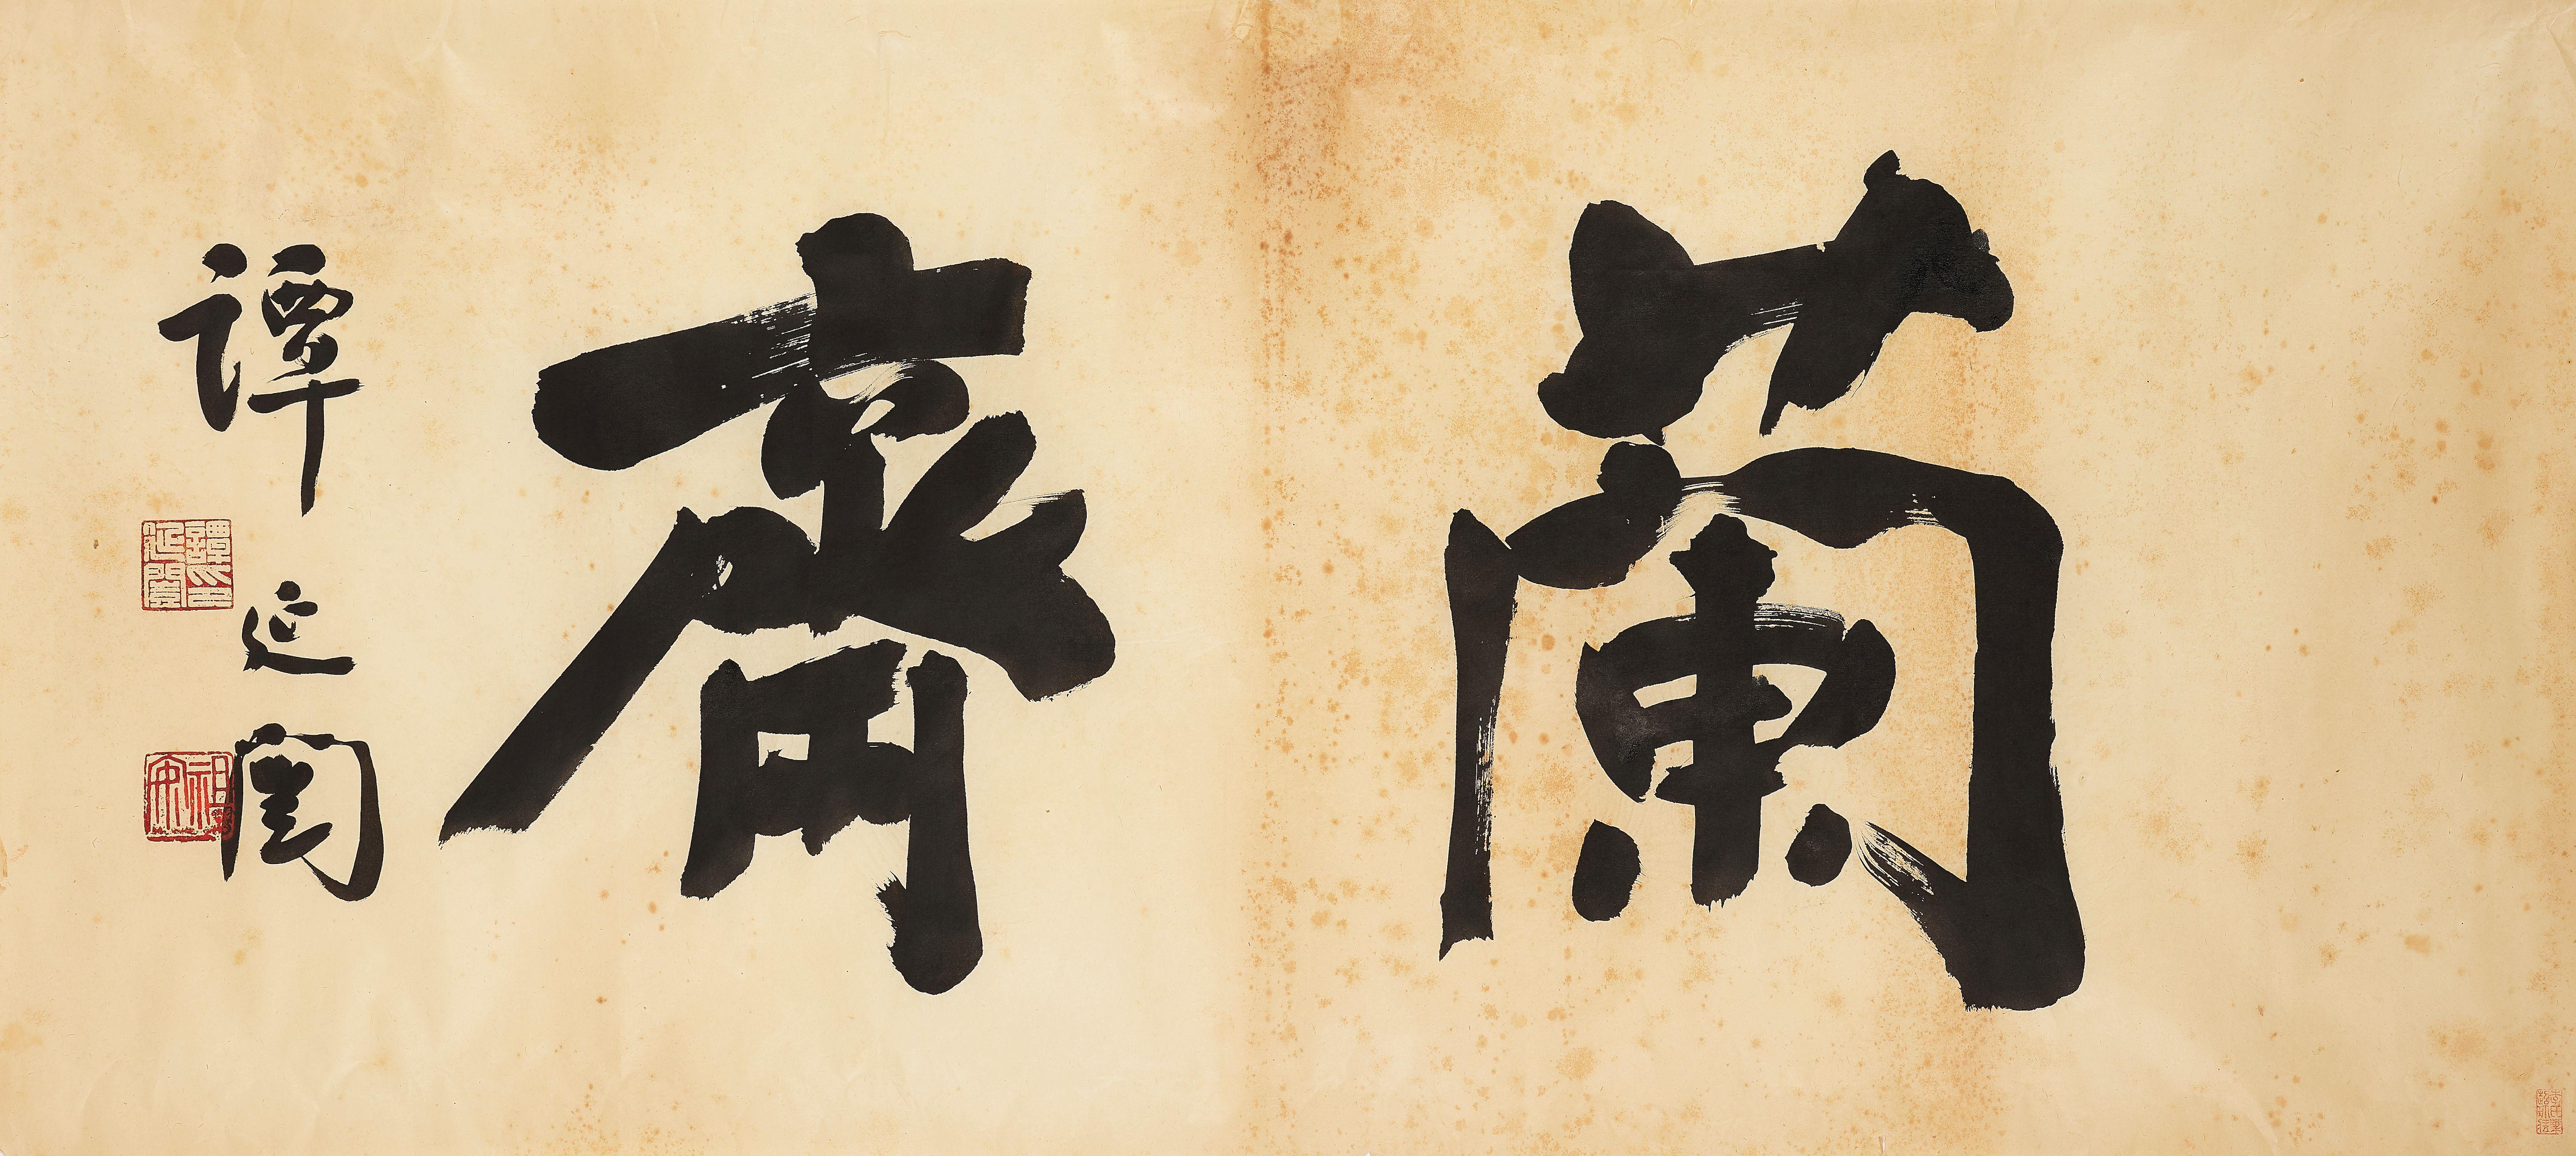 蘭齋
譚延闓
譚延闓印
祖安